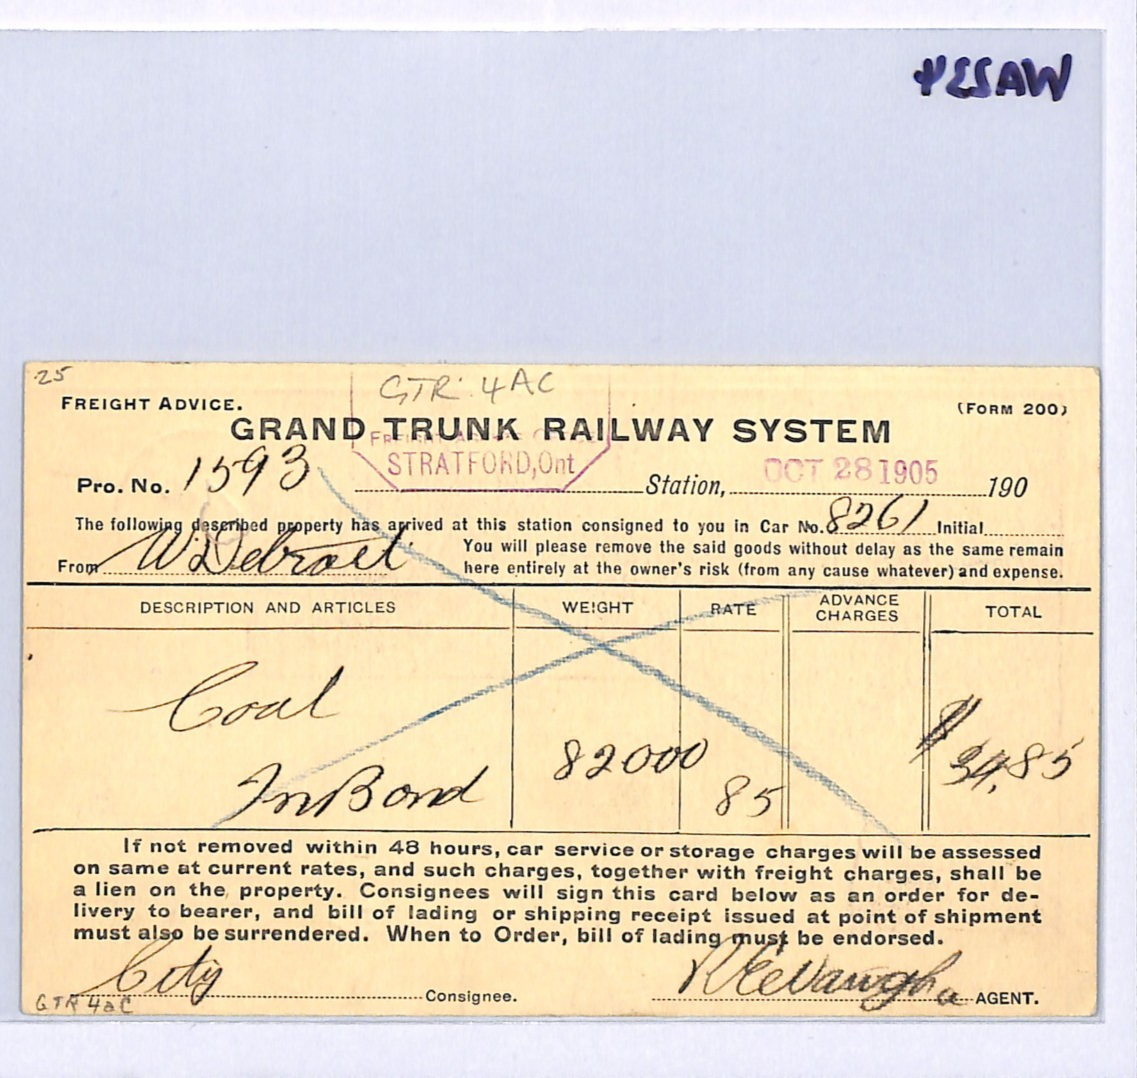 WA224
25
GTR. 4AC
FREIGHT ADVICE.
(FORM 200)
GRAND TRUNK RAILWAY SYSTEM
FREIGHT
STRATFORD, Ont
Pro. No. 1593 Station, OCT 28 1905 190
The following described property has arrived at this station consigned to you in Car No. 8261 Initial
From W. Detroit
You will please remove the said goods without delay as the same remain
here entirely at the owner's risk (from any cause whatever) and expense.
DESCRIPTION AND ARTICLES WEIGHT RATE ADVANCE CHARGES TOTAL
Coal
In Bond 82000 85 $ 34.85
If not removed within 48 hours, car service or storage charges will be assessed
on same at current rates, and such charges, together with freight charges, shall be
a lien on the property. Consignees will sign this card below as an order for de-
livery to bearer, and bill of lading or shipping receipt issued at point of shipment
must also be surrendered. When to Order, bill of lading must be endorsed.
City Consignee. AGENT.
GTR 4aC